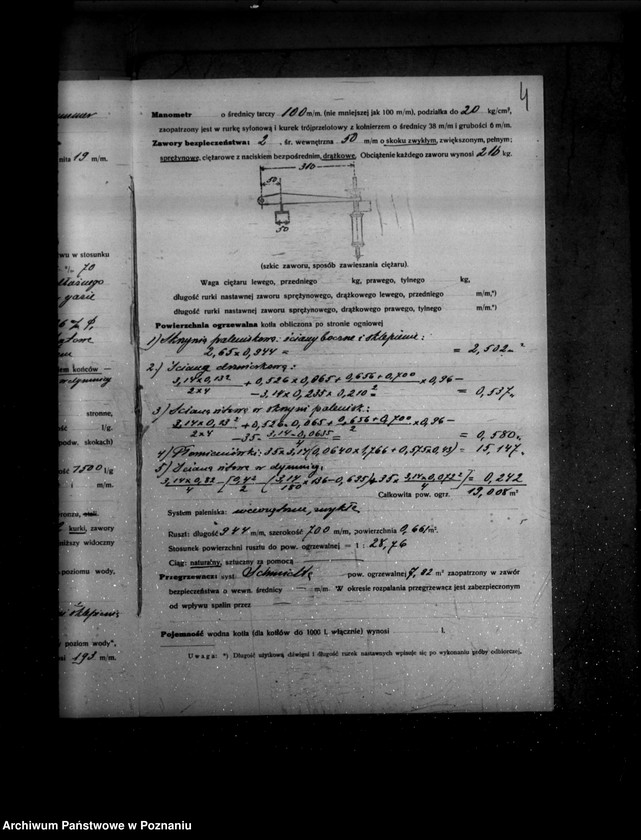 4
Manometr o średnicy tarczy 100 m/m. (nie mniejszej jak 100 m/m), podziałka do 20 kg/cm²,
zaopatrzony jest w rurkę syfonową i kurek trójprzelotowy z kołnierzem o średnicy 38 m/m i grubości 6 m/m.
Zawory bezpieczeństwa: 2, śr. wewnętrzna 50 m/m o skoku zwykłym, zwiększonym, pełnym;
sprężynowe, ciężarowe z naciskiem bezpośrednim, drążkowe. Obciążenie każdego zaworu wynosi 216 kg.
50
50
(szkic zaworu, sposób zawieszania ciężaru).
Waga ciężaru lewego, przedniego kg, prawego, tylnego kg,
długość rurki nastawnej zaworu sprężynowego, drążkowego lewego, przedniego m/m,*)
długość rurki nastawnej zaworu sprężynowego, drążkowego prawego, tylnego m/m.*)
Powierzchnia ogrzewalna kotła obliczona po stronie ogniowej
1) Skrzynia paleniskowa: ściany boczne i sklepienie:
2,65 x 0,944 = = 2,502 m²
2) Ściana drzwiczkowa:
3,14 x 0,13² / 2x4 + 0,526 x 0,065 + 0,656 + 0,700 x 0,96 –
– 3,14 x 0,235 x 0,210 = 0,537
3) Ściana sitowa w skrzyni palenisk.:
3,14 x 0,13² / 2x4 + 0,526 x 0,065 + 0,656 + 0,700 / 2 x 0,96 –
– 35 3,14 x 0,0635 / 4 = = 0,580
4) Płomieniówki: 35 x 3,14 (0,0640 x 1,766 + 0,575 x 0,43) = 15,147
5) Ściana sitowa w dymnicy:
= 0,242
Całkowita pow. ogrz. 19,008 m²
System paleniska: wewnętrzne, zwykłe
Ruszt: długość 944 m/m, szerokość 700 m/m, powierzchnia 0,661 m².
Stosunek powierzchni rusztu do pow. ogrzewalnej = 1 : 28,76
Ciąg: naturalny, sztuczny za pomocą
Przegrzewacz: syst. Schmidta pow. ogrzewalnej 7,82 m² zaopatrzony w zawór
bezpieczeństwa o wewn. średnicy — m/m. W okresie rozpalania przegrzewacz jest zabezpieczonym
od wpływu spalin przez
Pojemność wodna kotła (dla kotłów do 1000 l. włącznie) wynosi l.
Uwaga: *) Długość użytkową dźwigni i długość rurek nastawnych wpisuje się po wykonaniu próby odbiorczej.
19 m/m.
wu w stosunku
70
iem końców —
stronne,
l/g.
podw. skokach)
1500 l/g
i m/m.
kurki, zawory
niższy widoczny
poziomu wody,
poziom wody",
193 m/m.
Archiwum Państwowe w Poznaniu